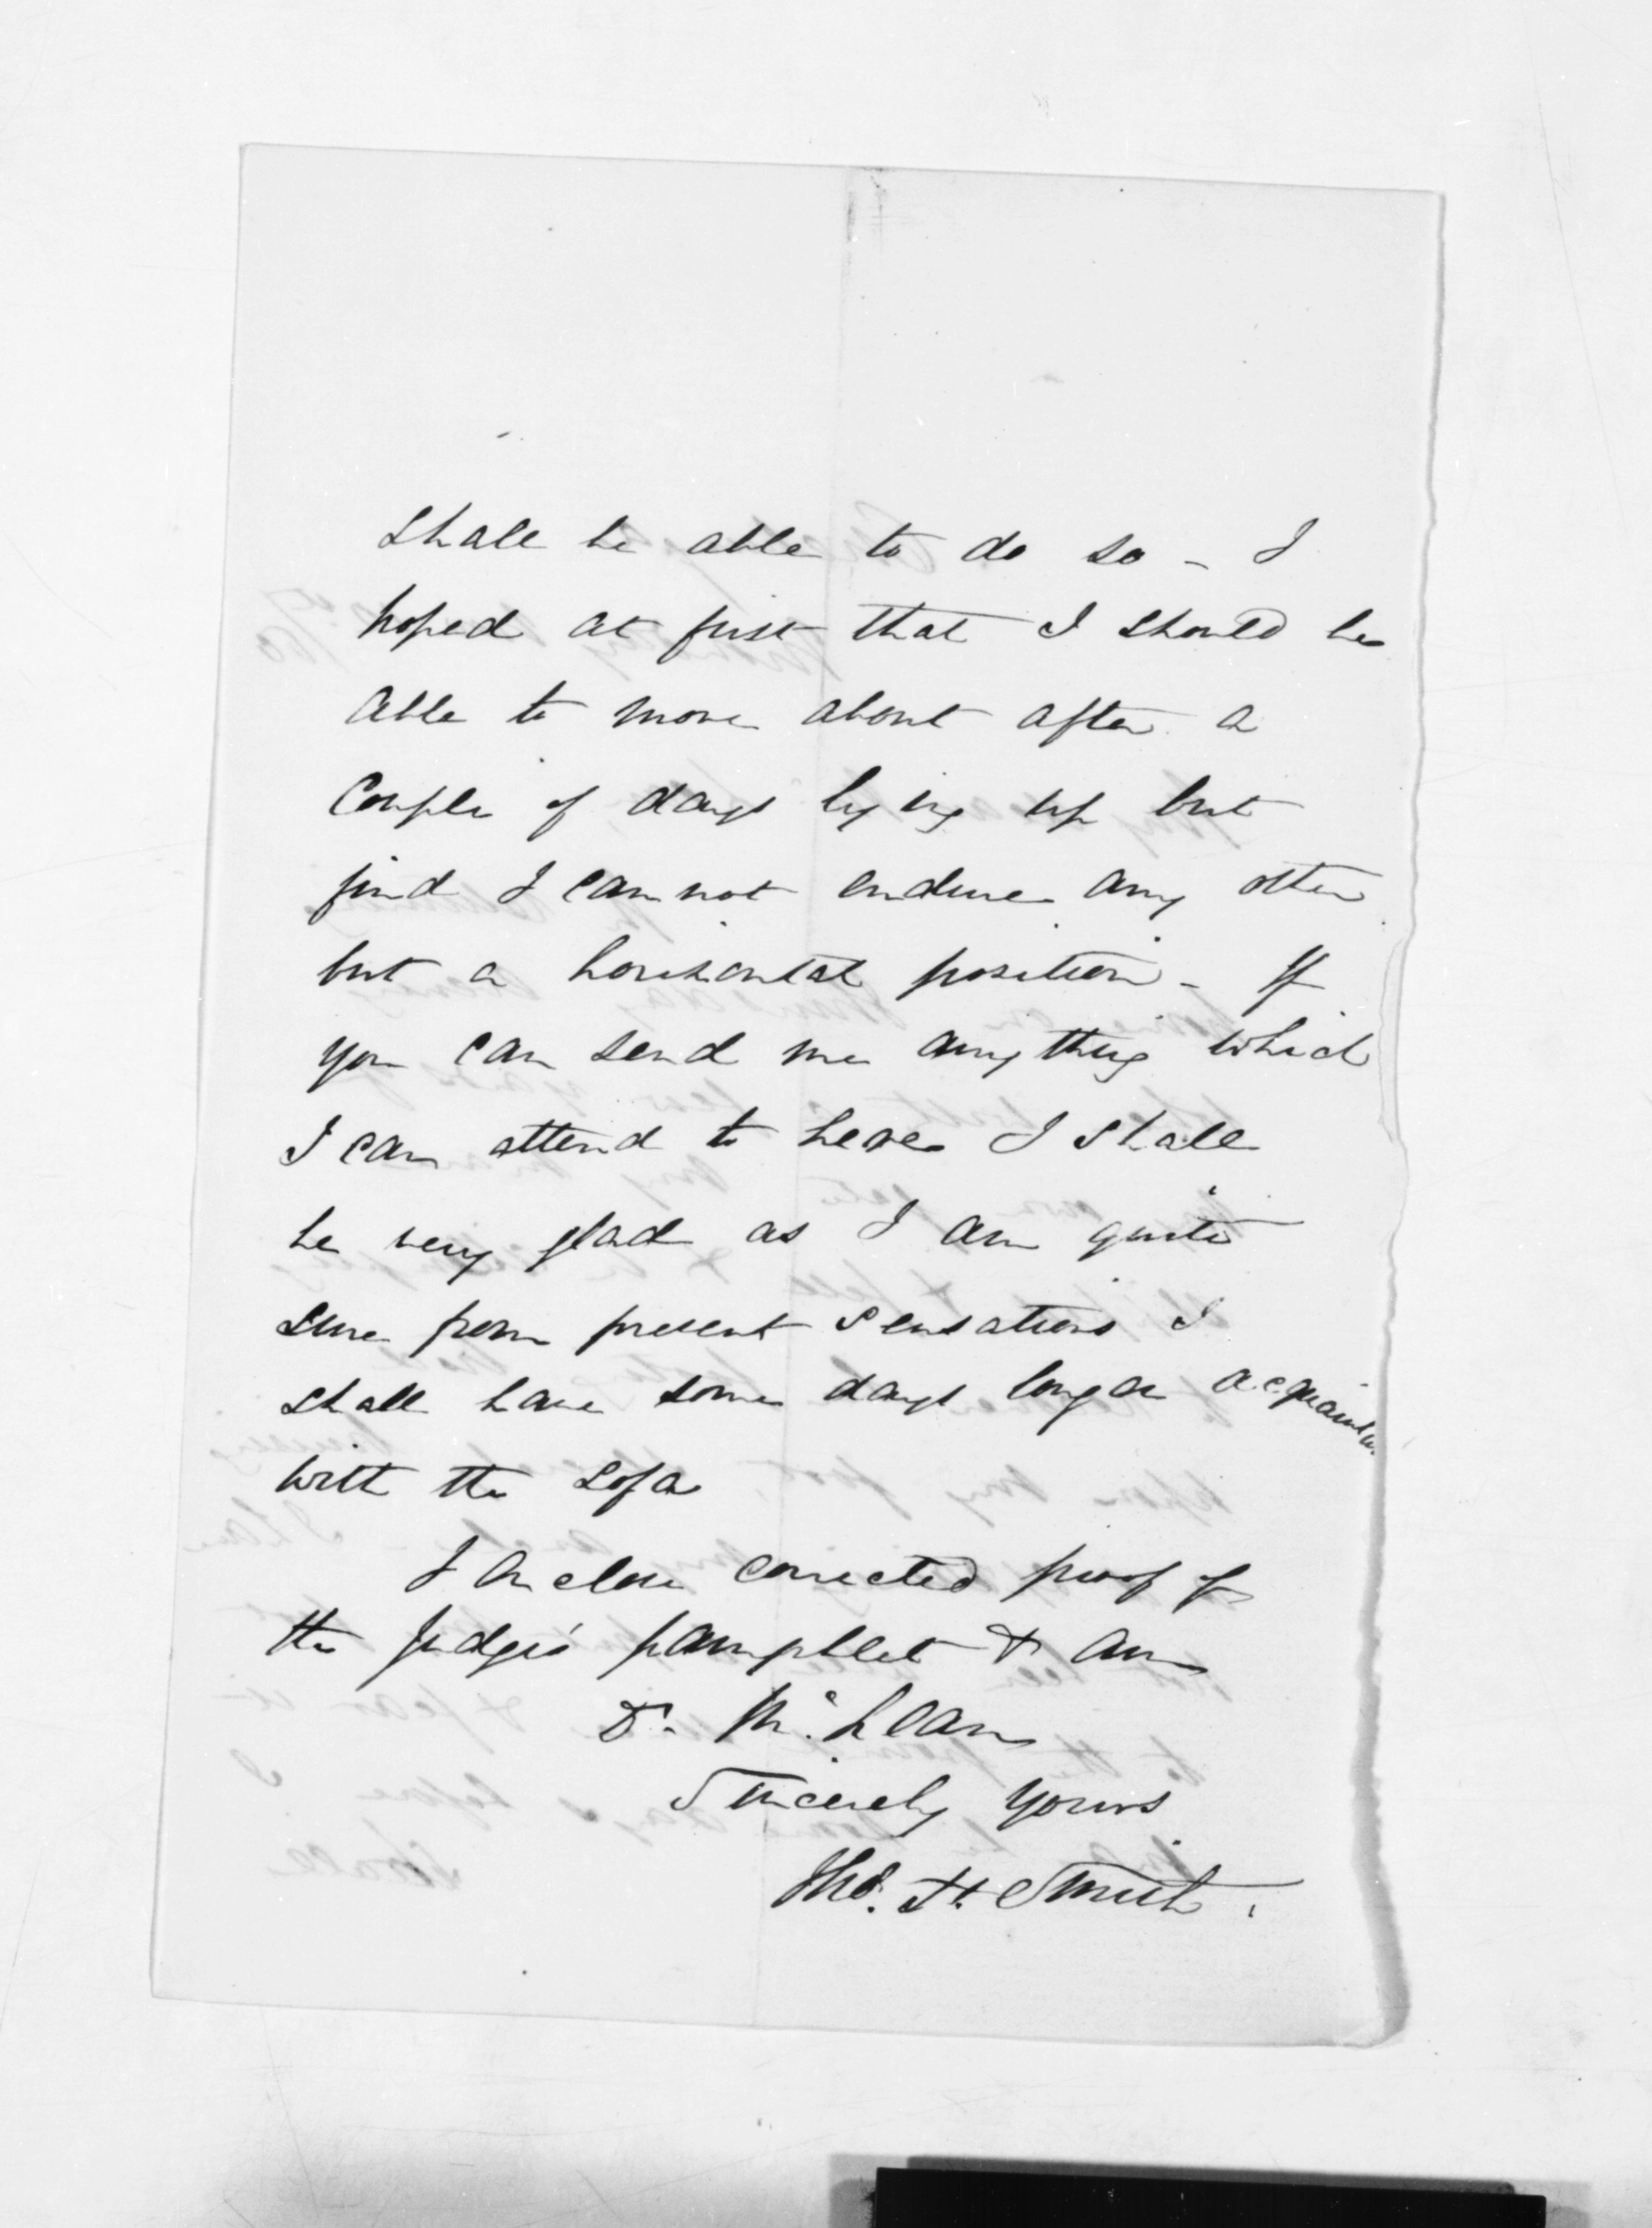 shall be able to do so - I
hoped at first that I should be
able to move about after a
couple of days lying up but
find I cannot endure any other
but a horizontal position - If
you can send me anything which
I can attend to here I shall
be very glad as I am quite
sure from present sensations I
shall have some days longer
with the sofa
I enclose corrected proof of
the Judge's pamphlet & am
Dr. McLean
Sincerely yours
Thos. H. Smith.